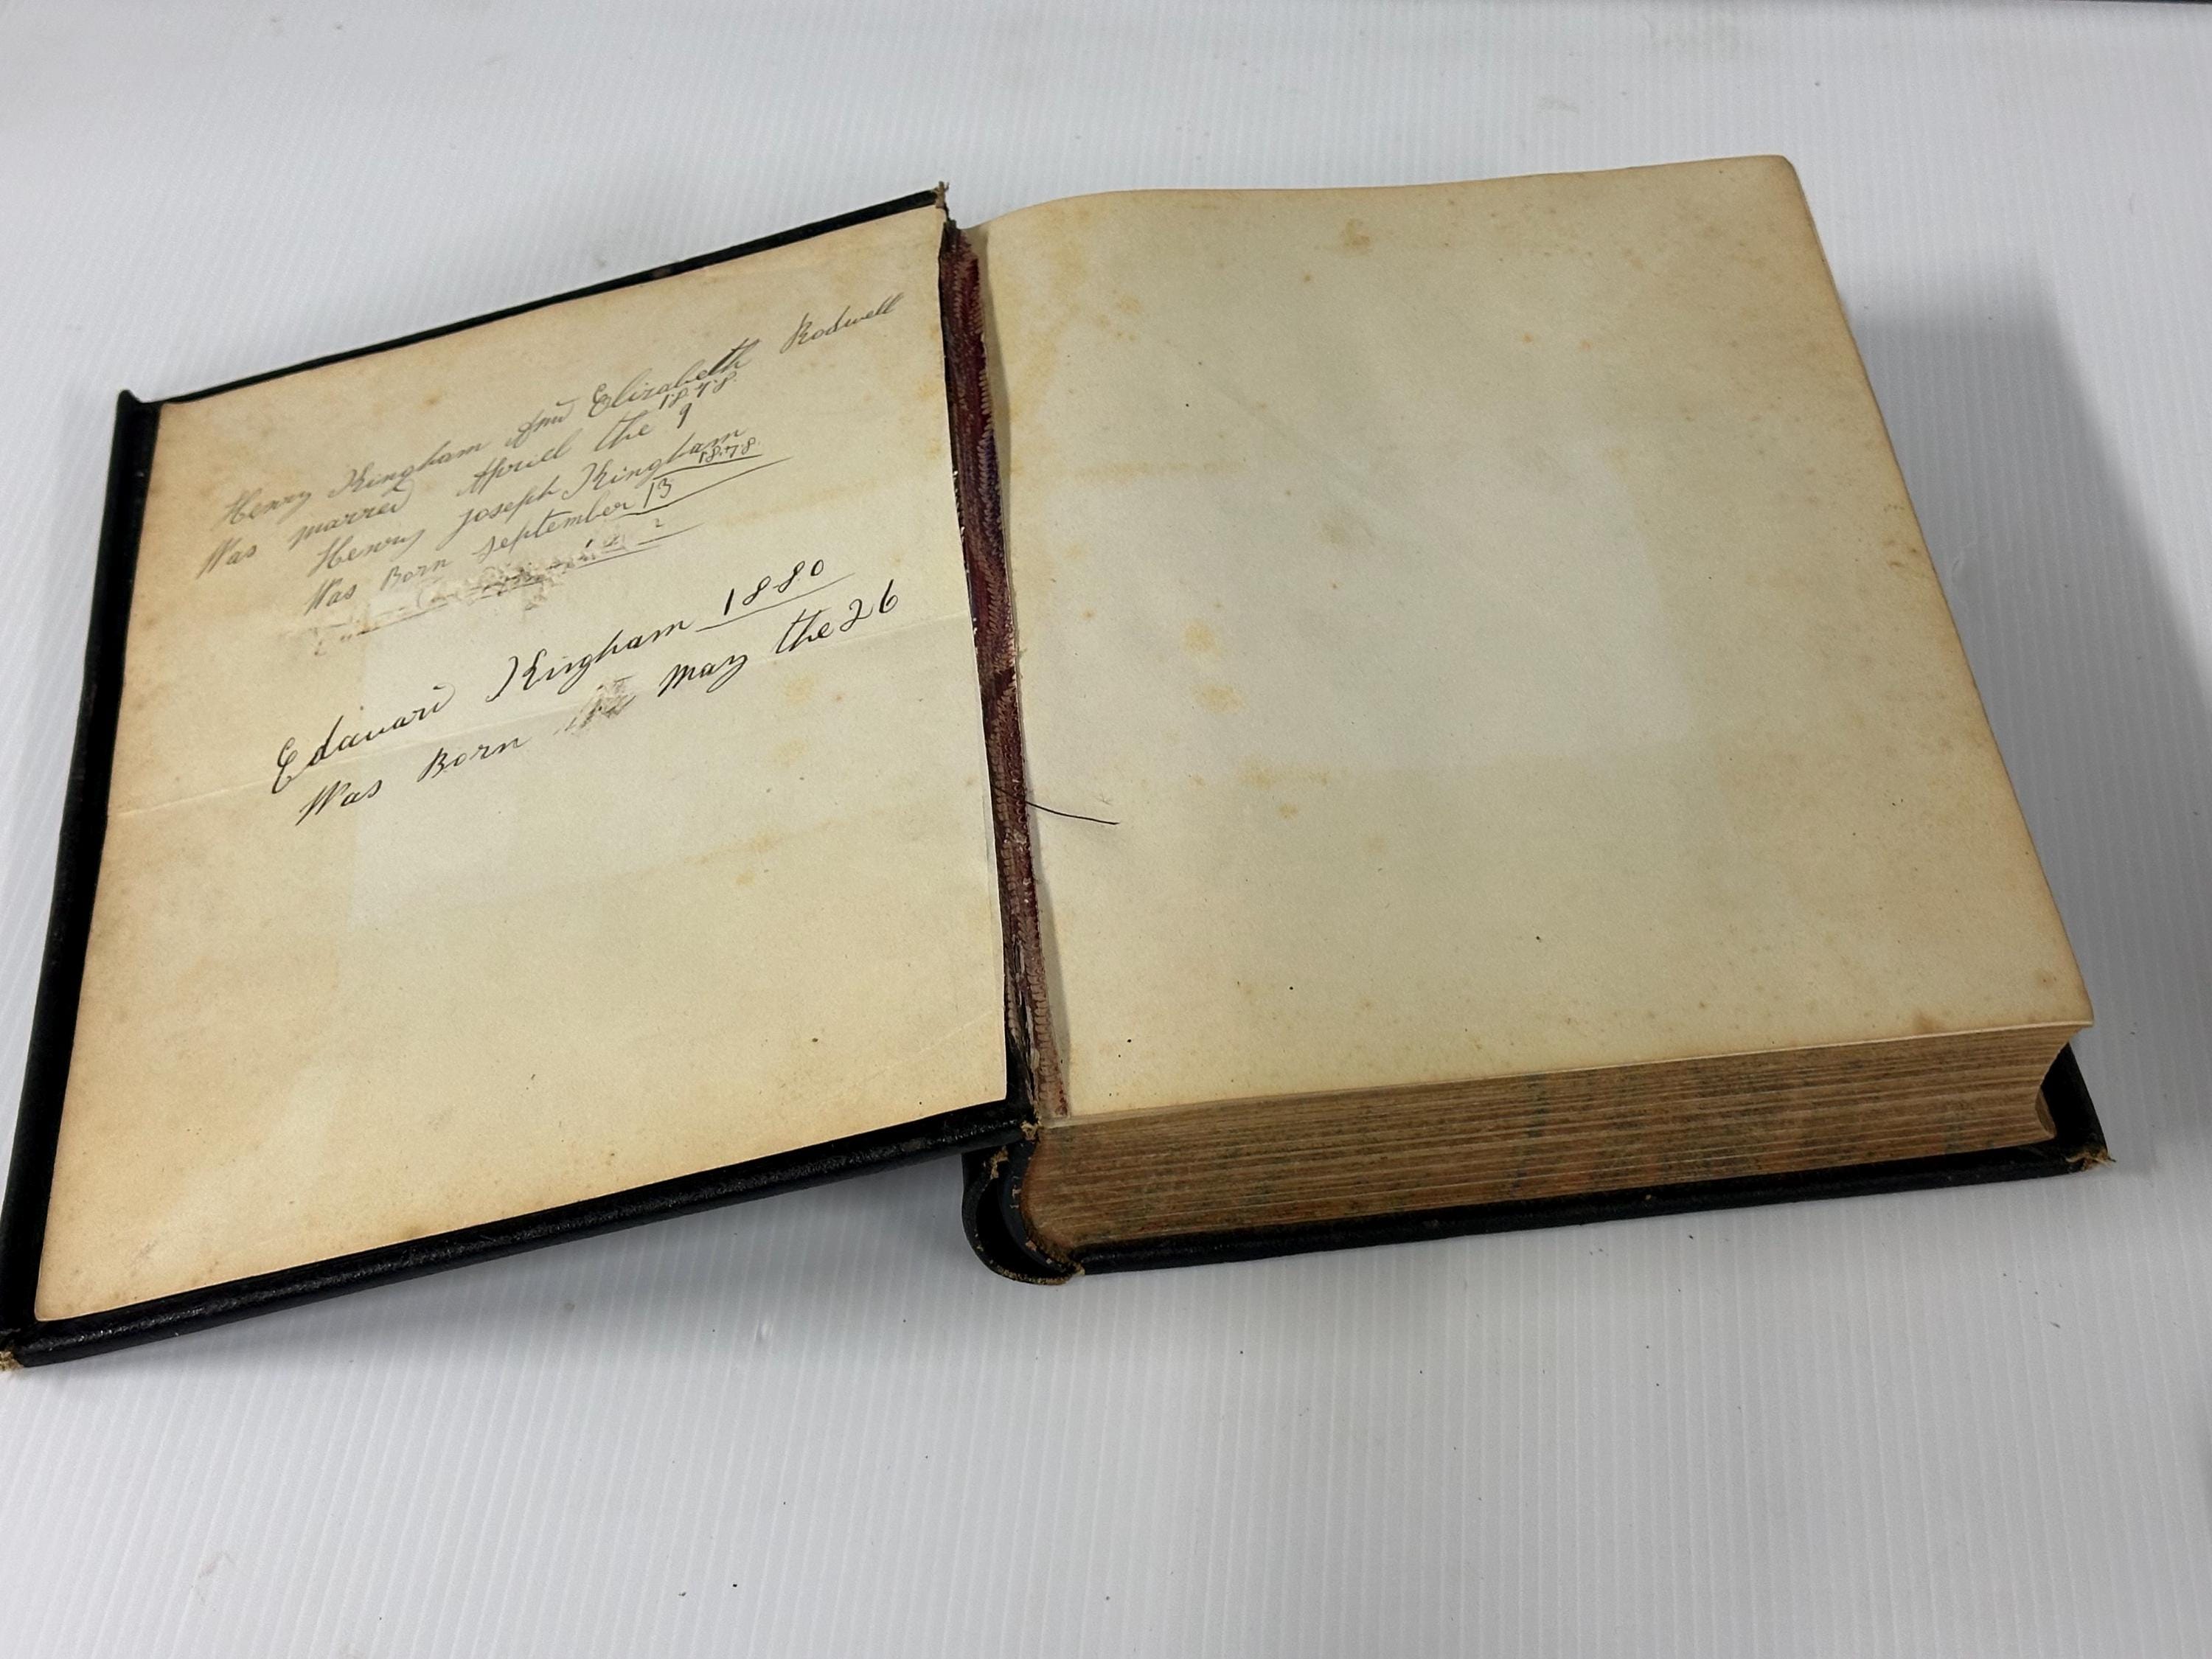 Henry Kingham And Elizabeth Rodwell
Was married Aprill the 9 1878.
Henry Joseph Kingham
Was Born September 13 1878.
Edward Kingham 1880
Was Born May the 26